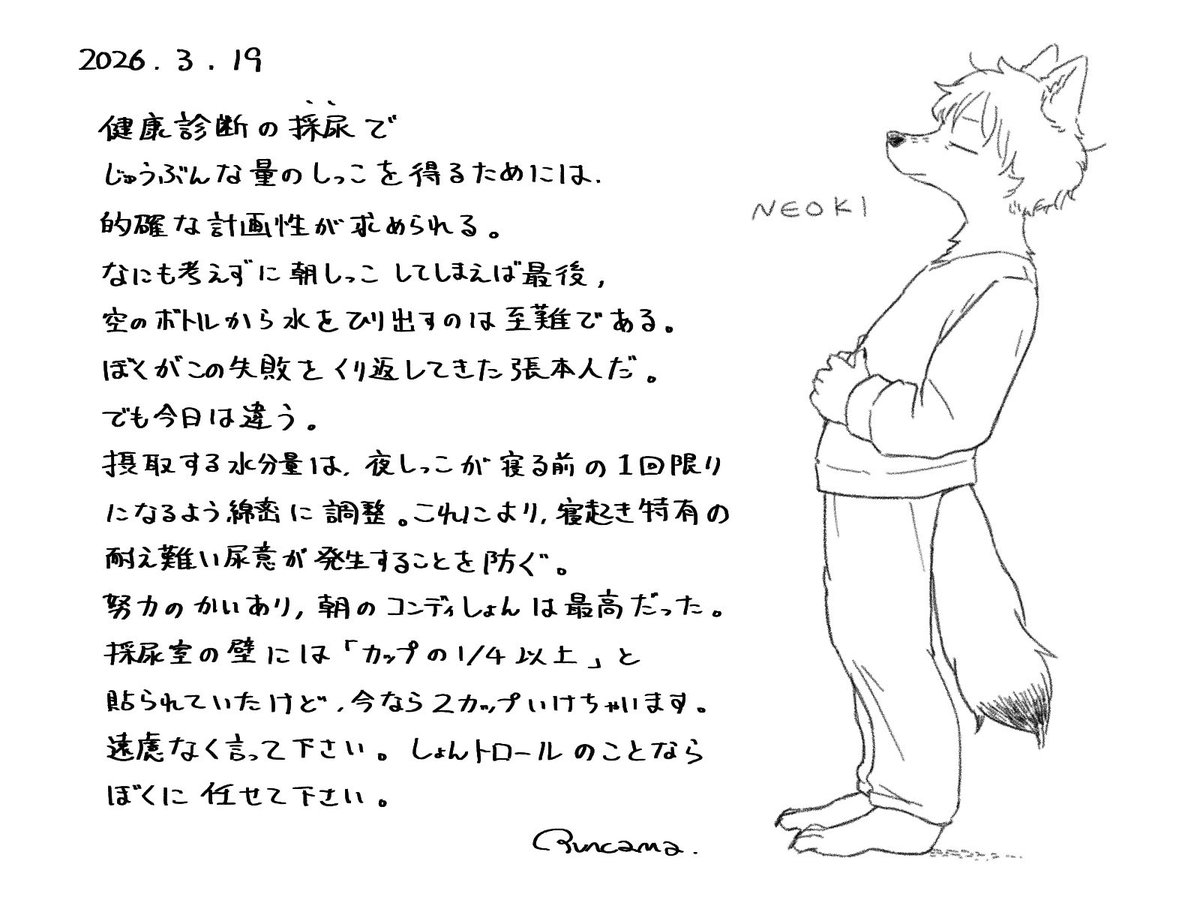 2026.3.19
健康診断の採尿で
じゅうぶんな量のしっこを得るためには、
的確な計画性が求められる。
なにも考えずに朝しっこしてしまえば最後,
空のボトルから水をひり出すのは至難である。
ぼくがこの失敗をくり返してきた張本人だ。
でも今日は違う。
摂取する水分量は、夜しっこが寝る前の1回限り
になるよう綿密に調整。これにより、寝起き特有の
耐え難い尿意が発生することを防ぐ。
努力のかいあり,朝のコンディしょんは最高だった。
採尿室の壁には「カップの1/4以上」と
貼られていたけど、今なら2カップいけちゃいます。
遠慮なく言って下さい。しょんトロールのことなら
ぼくに任せて下さい。
Runcama.
NEOKI